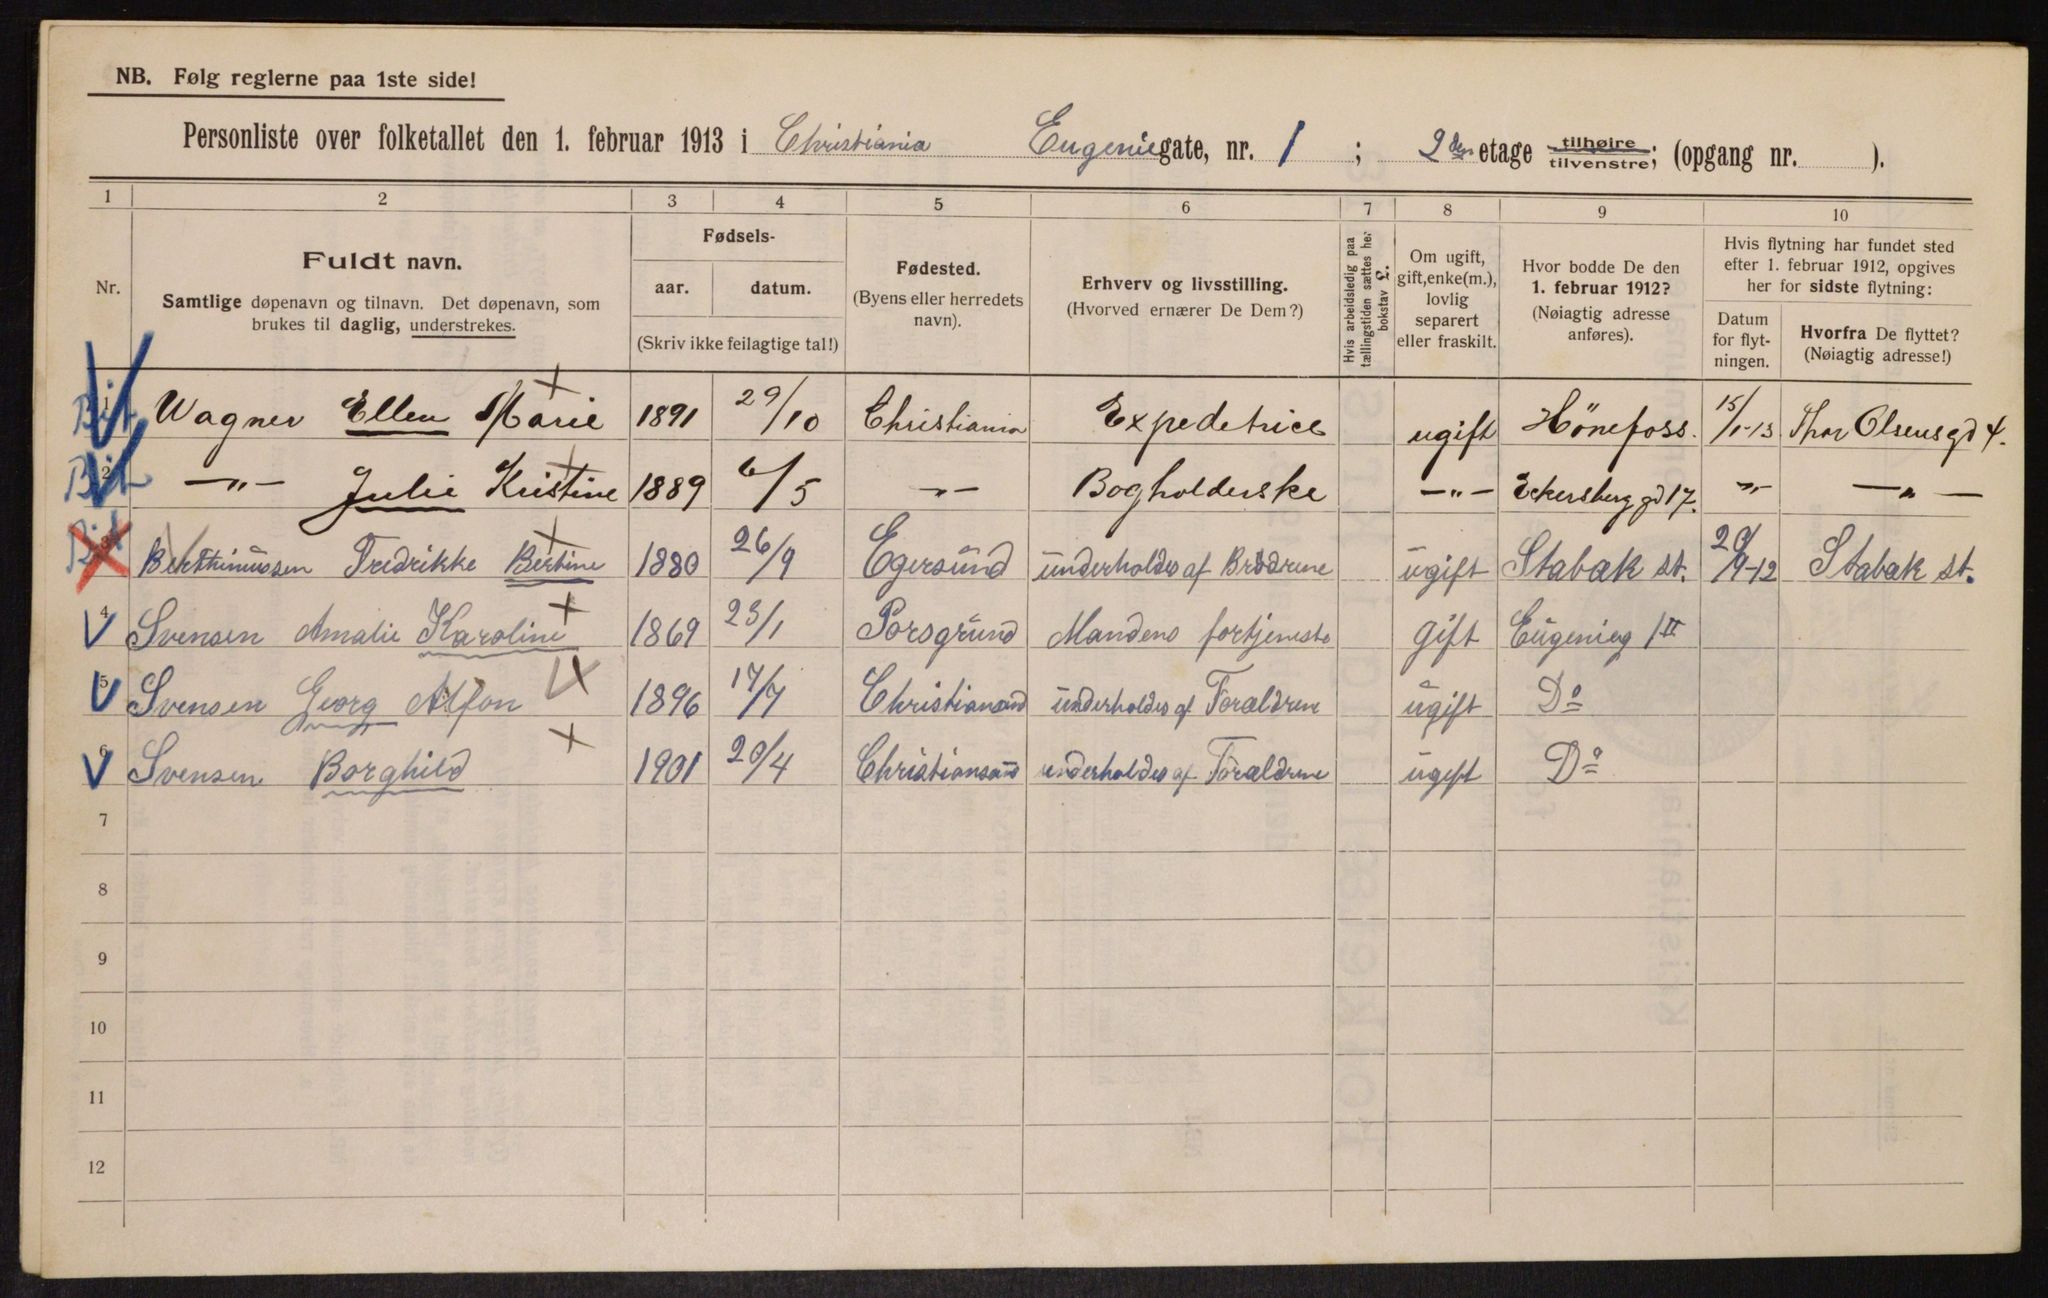 NB. Følg reglerne paa 1ste side!
Personliste over folketallet den 1. februar 1913 i Christiania Eugeniegate, nr. 1 ; 2den etage tilhøire/tilvenstre; (opgang nr. ).
1 2 3 4 5 6 7 8 9 10
Nr.
Fuldt navn.
Samtlige døpenavn og tilnavn. Det døpenavn, som
brukes til daglig, understrekes.
Fødsels-
aar. datum.
(Skriv ikke feilagtige tal!)
Fødested.
(Byens eller herredets
navn).
Erhverv og livsstilling.
(Hvorved ernærer De Dem?)
Hvis arbeidsledig paa
tællingstiden sættes her
bokstav £.
Om ugift,
gift, enke(m.),
lovlig
separert
eller fraskilt.
Hvor bodde De den
1. februar 1912?
(Nøiagtig adresse
anføres).
Hvis flytning har fundet sted
efter 1. februar 1912, opgives
her for sidste flytning:
Datum
for flyt-
ningen.
Hvorfra De flyttet?
(Nøiagtig adresse!)
1 Wagner Ellen Marie 1891 29/10 Christiania Expedetrice ugift Hönefoss. 15/1-13 Thor Olsensgd 4.
2 —"— Julie Kristine 1889 6/5 —"— Bogholderske —"— Eckersberg gd 17. —"— —"—
3 Fredrikke Bertine 1880 26/9 Egersund underholdes af Brødrene ugift Stabæk st. 20/9-12 Stabæk st.
4 Svensen Amalie Karoline 1869 23/1 Porsgrund Mandens fortjeneste gift Eugenieg 1 II
5 Svensen Georg Alfon 1896 17/7 Christiansand underholdes af Foraldrene ugift Do
6 Svensen Borghild 1901 20/4 Christiansand underholdes af Foraldrene ugift Do
7
8
9
10
11
12